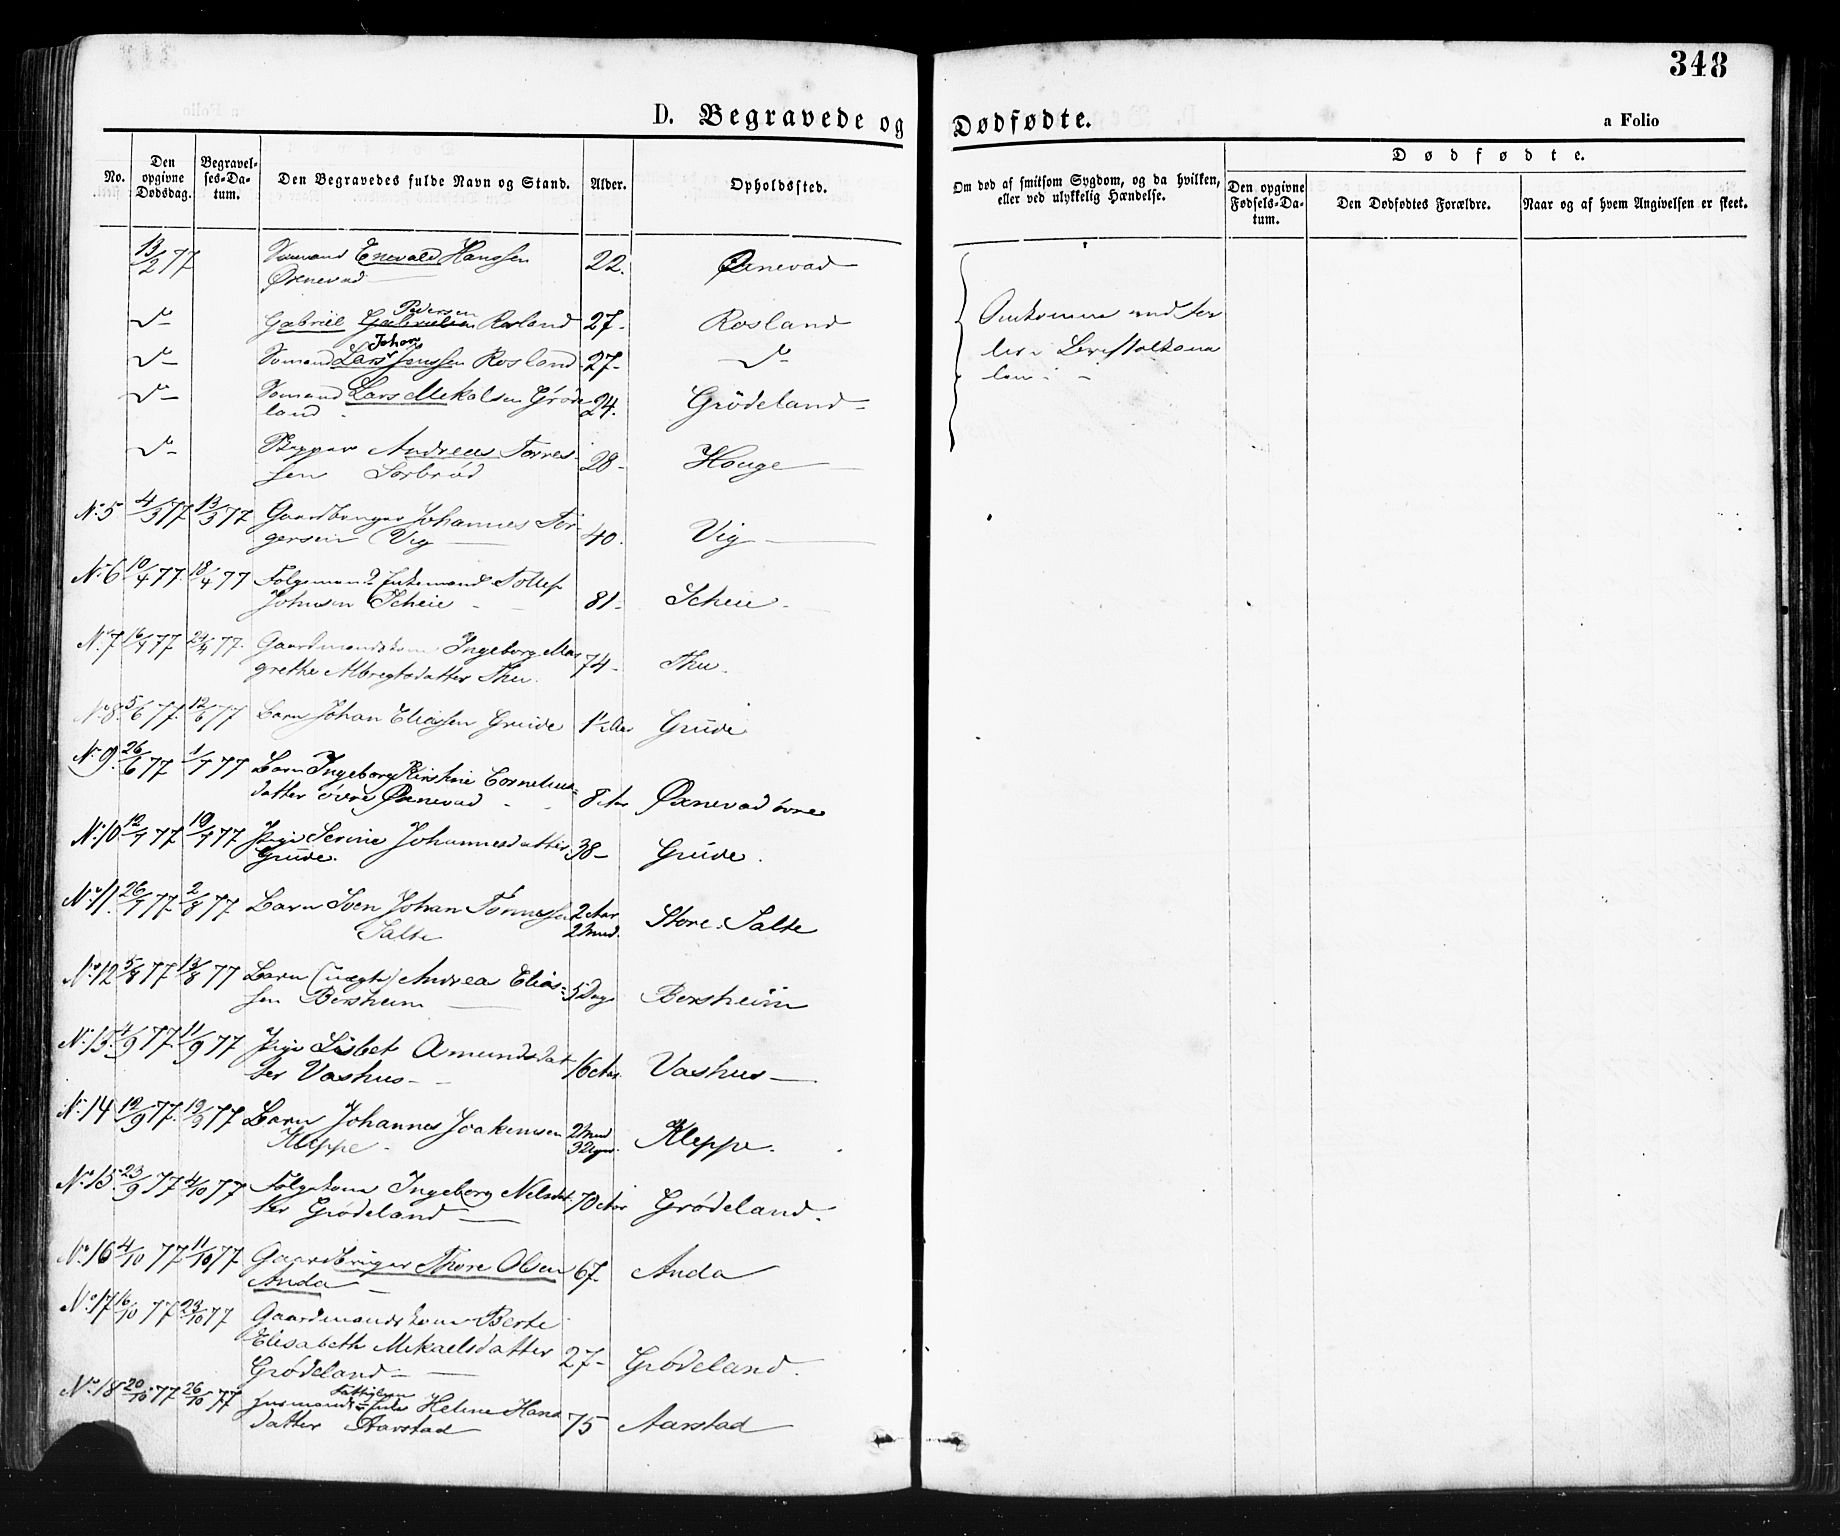 348
D. Begravede og Dødfødte.
a Folio
No.
Den opgivne Dødsdag.
Begravelses-Datum.
Den Begravedes fulde Navn og Stand.
Alder.
Opholdssted.
Om død af smitsom Sygdom, og da hvilken, eller ved ulykkelig Hændelse.
Dødfødte.
Den opgivne Fødsels-Datum.
Den Dødfødtes Forældre.
Naar og af hvem Angivelsen er skeet.
13/2 77 Sømand Enevald Hanssen 22. Øxnevad
Øxnevad
do Gabriel Gabrielsen Pedersen Rosland 27- Rosland
do Sømand Lars Johan Janssen Rosland 27- do
do Sømand Lars Mekalsen Grøde 24. Grödeland
land
do Skipper Andreas Torres- 28- Houge
sen Sørbrød
Omkomne
i
No 5 4/3 77 13/3 77 Gaardbruger Johannes Tor- 40. Vig
gersen Vig
No 6 10/4 77 18/4 77 Folgemand Enkemand Tollef 81- Scheie
Johnsen Scheie
No 7 16/4 77 24/4 77 Gaardmandskone Ingeborg Mar 74- Thu
grethe Albregtsdatter Thu.
No 8 5/6 77 12/6 77 Barn Johan Eliassen Grude 1½ Aar Grude
No 9. 26/6 77 1/7 77 Barn Ingeborg Kirstine Cornelius= 8 Aar Øxnevad övre
datter övre Øxnevad
No 10 12/7 77 19/7 77 Pige Serine Johannesdatter 38- Grude.
Grude.
No 11. 26/7 77 2/8 77 Barn Sven Johan Tönnessen 2 Aar 2 Mnd. Store Salte
Salte
No 12 5/8 77 13/8 77 Barn (uægte) Andrea Elias= 5 Dage Borsheim
sen Borsheim
No 13. 4/9 77 11/9 77 Pige Lisbet Amundsdat 16 Aar Vashus
ter Vashus
No 14 12/9 77. 19/9 77 Barn Johannes Joakimsen 2 Mnd 3 Uger. Kleppe.
Kleppe
No 15 23/9 77 4/10 77 Folgekone Ingeborg Nelsdat 70 Aar Grødeland.
ter Grødeland
No 16 4/10 77 11/10 77 Gaardbruger Thore Olsen 67. Anda
Anda
No 17 16/10 77 23/10 77 Gaardmandskone Berte
Elisabeth Mikaelsdatter 27- Grødeland.
Grødeland
No 18 20/10 77 26/10 77 Husmands Enke Helene Hans 75 Aarstad
datter Aarstad